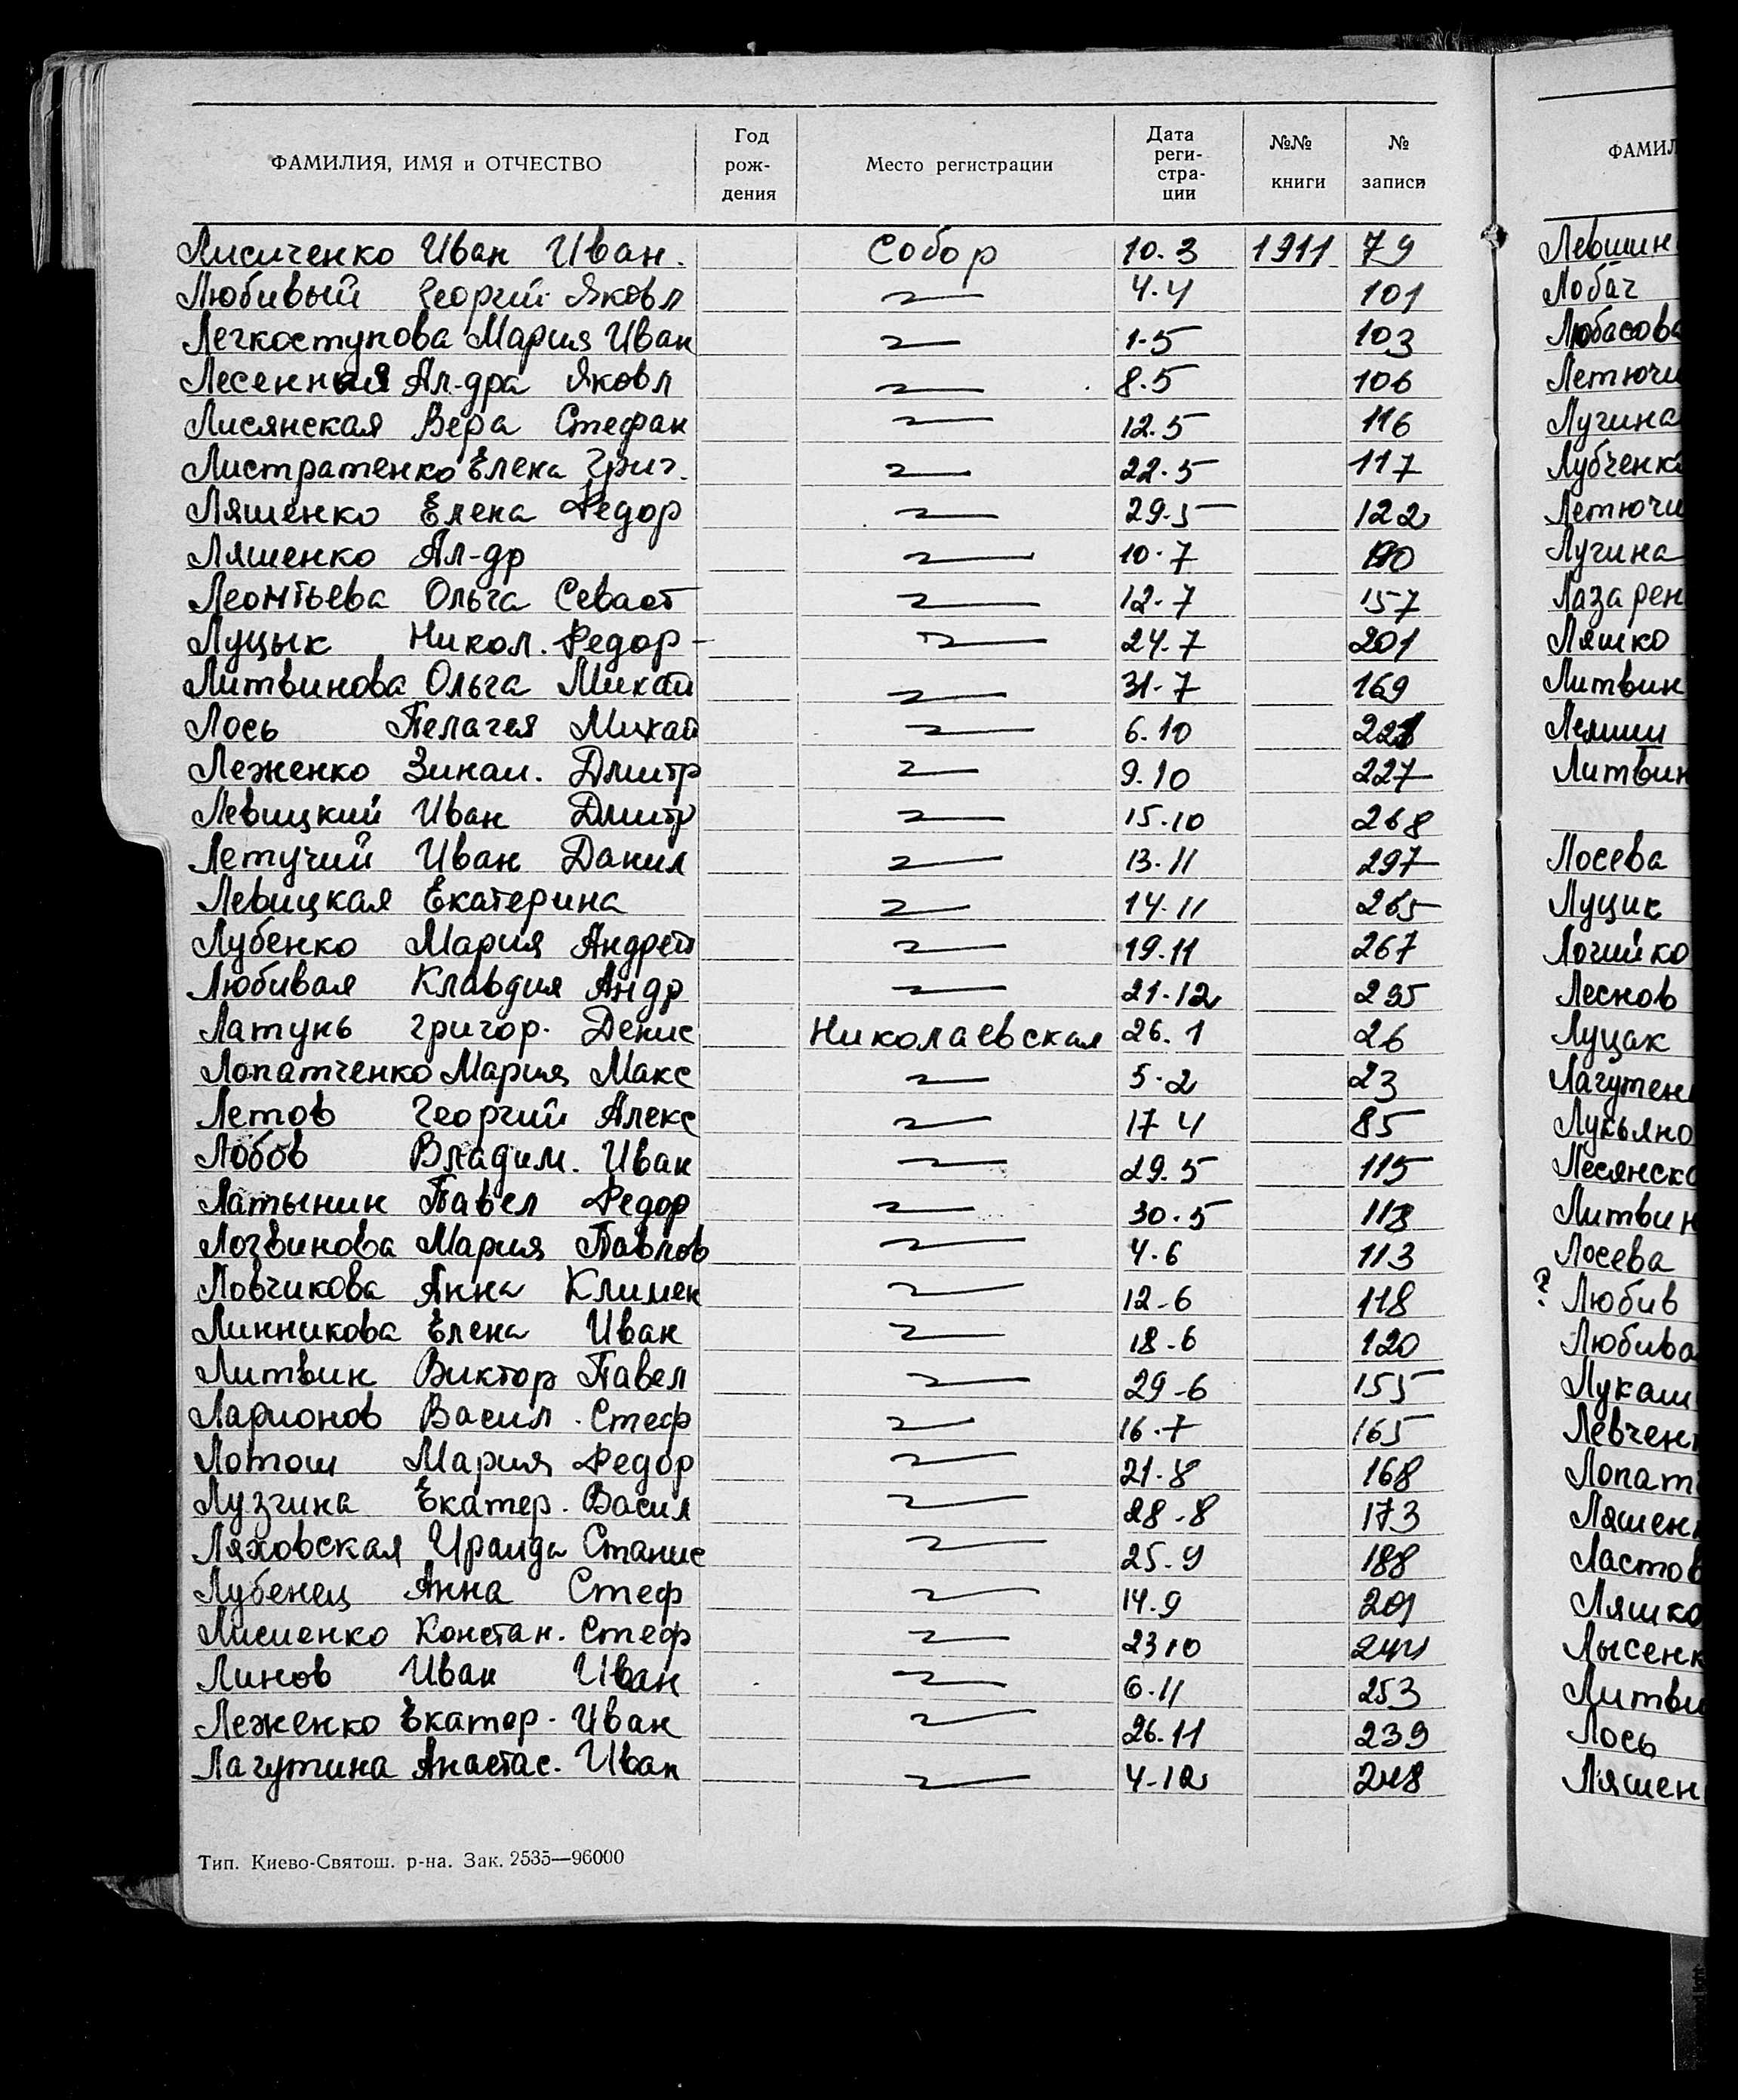 ФАМИЛИЯ, ИМЯ и ОТЧЕСТВО Год рождения Место регистрации Дата регистрации №№ книги № записи
Лисиченко Иван Иван. Собор 10.3 1911 79
Любивый Георгий Яковл 4.4 101
Легкоступова Мария Иван 1-5 103
Лесенная Ал-дра Яковл 8.5 106
Лисянская Вера Стефан 12.5 116
Листратенко Елена Григ. 22.5 117
Ляшенко Елена Федор 29.5 122
Ляшенко Ал-др 10.7
Леонтьева Ольга Севаст 12.7 157
Луцык Никол. Федор 24.7 201
Литвинова Ольга Михай 31.7 169
Лось Пелагея Михай 6.10
Леженко Зинаи. Дмитр 9.10 227
Левицкий Иван Дмитр 15.10 268
Летучий Иван Данил 13.11 297
Левицкая Екатерина 14.11 265
Лубенко Мария Андрей 19.11 267
Любивая Клавдия Андр 21.12 295
Латунь Григор. Денис Николаевская 26.1 26
Лопатченко Мария Макс 5.2 23
Летов Георгий Алекс 17 4 85
Лобов Владим. Иван 29.5 115
Латынин Павел Федор 30.5 118
Логвинова Мария Павлов 4.6 113
Ловчикова Анна Климен 12-6 118
Линникова Елена Иван 18-6 120
Литвин Виктор Павел 29-6 155
Ларионов Васил. Стеф 16.7 165
Лотош Мария Федор 21.8 168
Лузгина Екатер. Васил 28-8 173
Ляховская Ираида Станис 25.9 188
Лубенец Анна Стеф 14.9 201
Лисиенко Констан. Стеф 23 10 244
Линов Иван Иван 6.11 253
Леженко Екатер. Иван 26.11 239
Лагутина Анастас. Иван 4-12 248
Тип. Киево-Святош. р-на. Зак. 2535—96000
ФАМИЛ
Левшин
Лобач
Любасова
Летючи
Лугина
Лубченк
Летючи
Лугина
Лазарен
Ляшко
Литвин
Литвин
Лосева
Луцик
Логийко
Леснов
Луцак
Лагутен
Лукьяно
Лесянск
Литвин
Лосева
? Любив
Любива
Лукаш
Левчен
Лопат
Ляшен
Ластов
Ляшко
Лысенк
Литви
Лось
Ляшен